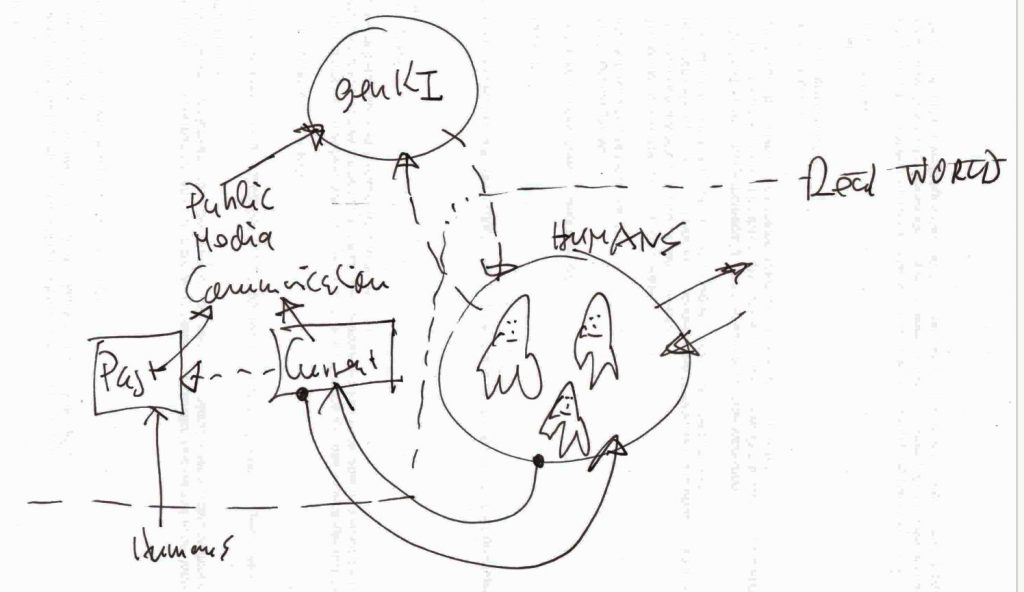 genKI
Public
Media
Communication
Real WORLD
HUMANS
Past
Current
Humans